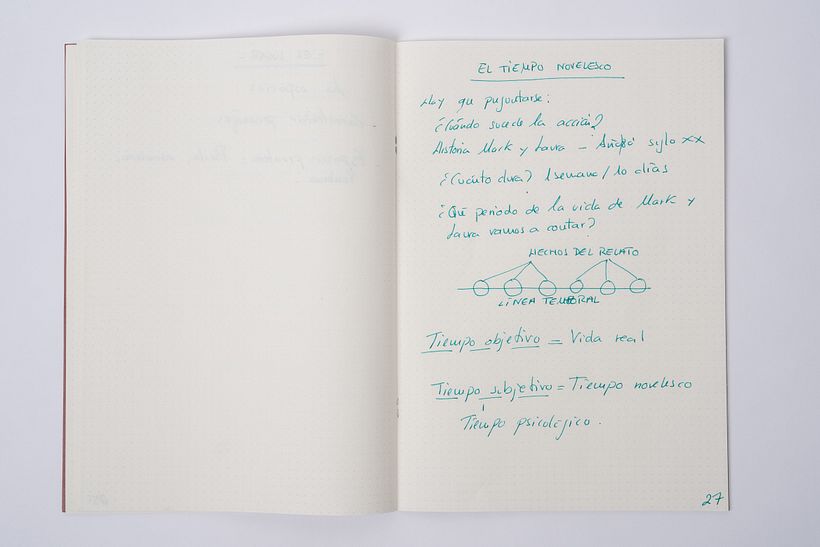 EL TIEMPO NOVELESCO
Hay que preguntarse:
¿Cuándo sucede la acción?
Historia Mark y Laura - siglo XX
¿Cuánto dura? 1 semana / 10 días
¿Qué periodo de la vida de Mark y
Laura vamos a contar?
HECHOS DEL RELATO
LÍNEA TEMPORAL
Tiempo objetivo = Vida real
Tiempo subjetivo = Tiempo novelesco
Tiempo psicológico.
27